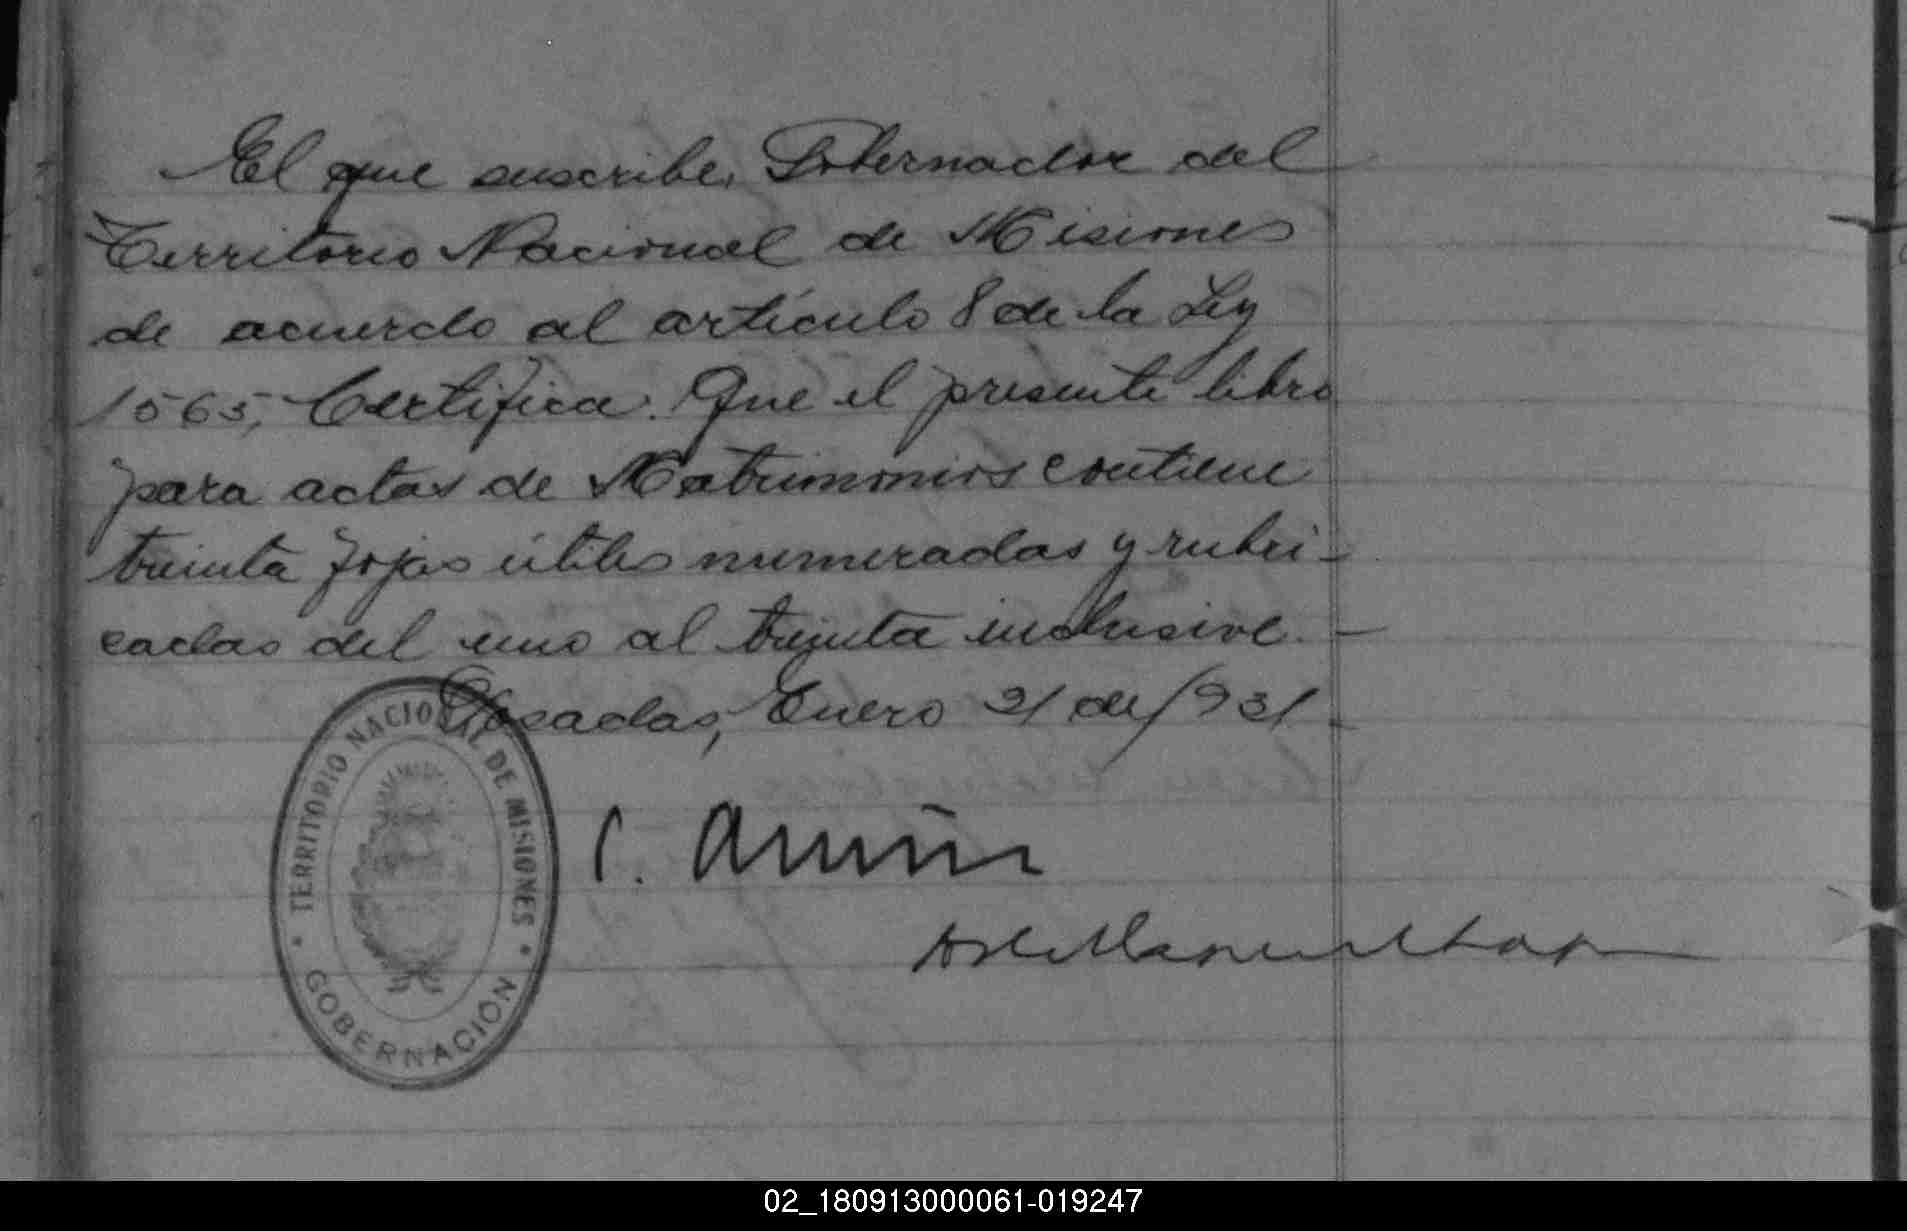 El que suscribe, Gobernador del
Territorio Nacional de Misiones
de acuerdo al artículo 8 de la Ley
1565, Certifica: Que el presente libro
para actas de Matrimonios contiene
treinta fojas útiles numeradas y rubri-
cadas del uno al treinta inclusive. —
Posadas, Enero 21 de 1931
TERRITORIO NACIONAL DE MISIONES
GOBERNACIÓN
C.
02_180913000061-019247